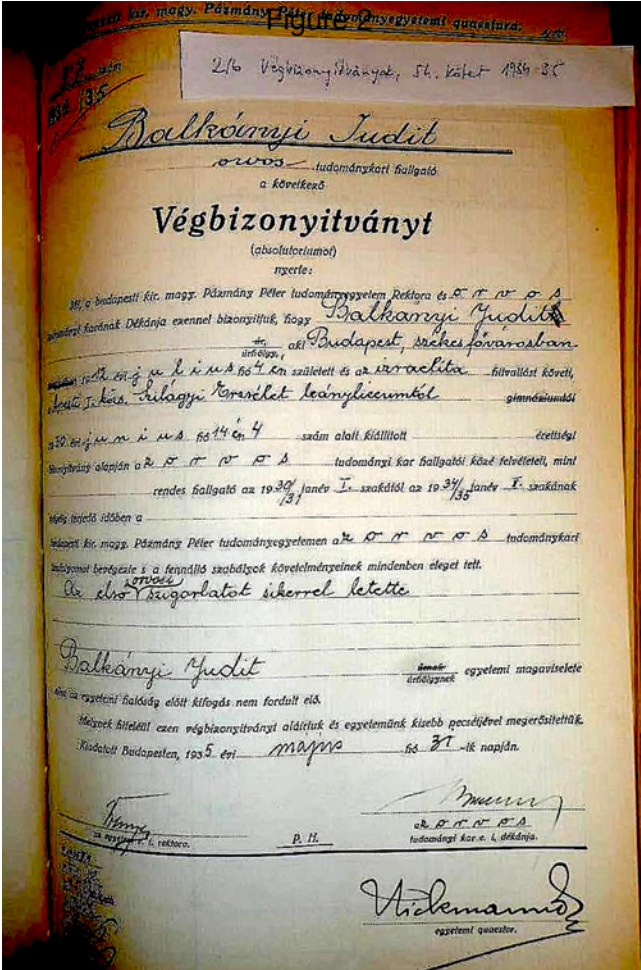 kir. magy. Pázmány Péter tudományegyetemi quaestura.
Figure 2
2/b Végbizonyítványok, 54. kötet 1934-35
Balkányi Judit
orvos tudománykari hallgató
a következő
Végbizonyitványt
(absolutoriumot)
nyerte:
Mi, a budapesti kir. magy. Pázmány Péter tudományegyetem Rektora és orvos
karának Dékánja ezennel bizonyitjuk, hogy Balkányi Judit
úr,
úrhölgy, aki Budapest, székesfővárosban
1912 évi julius hó 4 én született és az izraelita hitvallást követi,
I. köz. Szilágyi Erzsébet leányliceumtól gimnáziumtól
30 évi junius hó 14 én 4 szám alatt kiállitott érettségi
bizonyitvány alapján az orvos tudományi kar hallgatói közé felvétetett, mint
rendes hallgató az 1930/31 tanév I. szakától az 1934/35 tanév II. szakának
végéig terjedő időben a
budapesti kir. magy. Pázmány Péter tudományegyetemen az orvos tudománykari
tanfolyamot bevégezte s a fennálló szabályok követelményeinek mindenben eleget tett.
Az első orvosi szigorlatot sikerrel letette
Balkányi Judit úrnak
úrhölgynek egyetemi magaviselete
ellen az egyetemi hatóság előtt kifogás nem fordult elő.
Melynek hiteléül ezen végbizonyitványt aláirtuk és egyetemünk kisebb pecsétjével megerősitettük.
Kiadatott Budapesten, 1935 évi május hó 31-ik napján.
az egyetem e. i. rektora.
P. H.
az orvos
tudományi kar e. i. dékánja.
egyetemi quaestor.